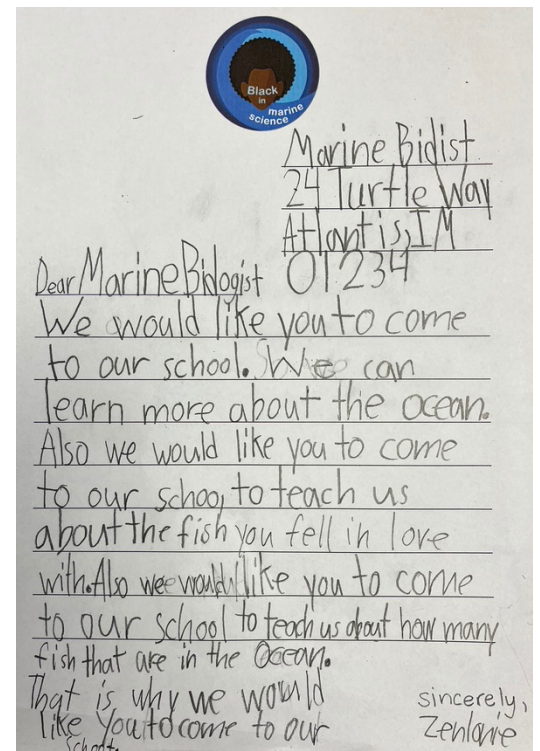 Black
in
marine
science
Marine Bidist
24 Turtle Way
Atlantis, IM
01234
Dear Marine Bidogist
We would like you to come
to our school. We can
learn more about the ocean.
Also we would like you to come
to our school to teach us
about the fish you fell in love
with. Also we would like you to come
to our school to teach us about how many
fish that are in the ocean.
That is why we would
like you to come to our
school.
sincerely,
Zenlanie